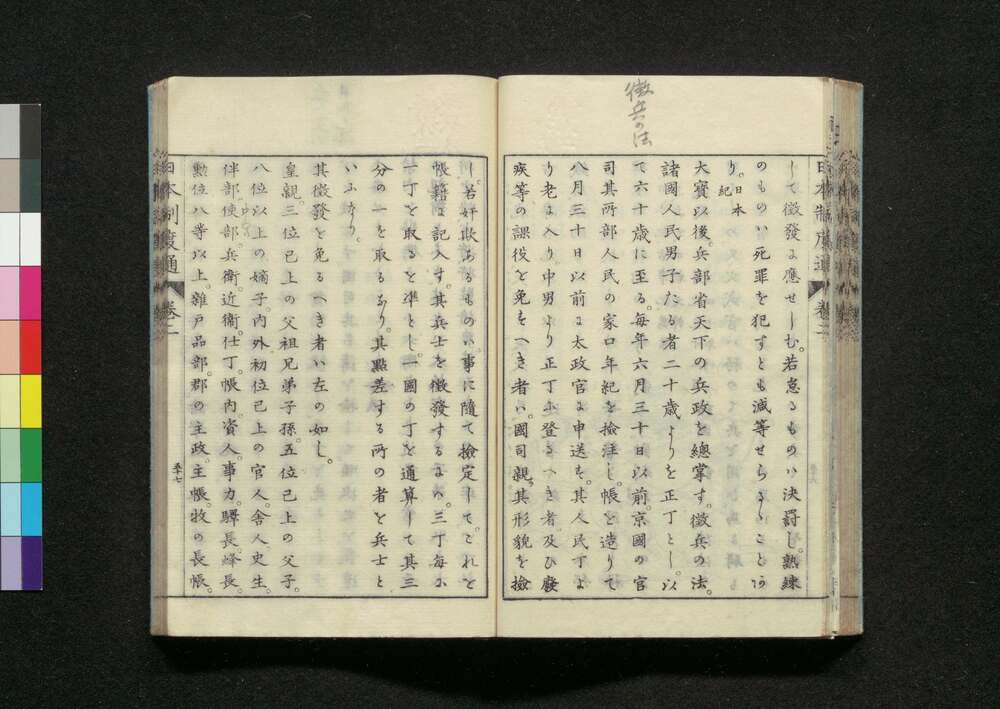 徴兵の法
して徴發に應せしむ。若怠るものハ決罰し。熟練
のものハ死罪を犯すとも減等せらるゝことあ
り。日本紀
大寶以後。兵部省天下の兵政を總掌す。徴兵の法。
諸國人民男子たる者二十歳よりを正丁とし。以
て六十歳に至る。毎年六月三十日以前。京國の官
司其所部人民の家口年紀を撿注し。帳を造りて
八月三十日以前に太政官に申送す。其人民丁よ
り老に入り中男より正丁に登るへき者及ひ癈
疾等の課役を免すへき者ハ。國司親ら其形貌を撿
日本制度通 卷二
し。若奸欺あるものハ事に隨て撿定して。これを
帳籍に記入す。其兵士を徴發するにハ。三丁每に
一丁を取るを準とし。一國の丁を通算して其三
分の一を取るなり。其點差する所の者を兵士と
いふなり。
其徴發を免るへき者ハ左の如し。
皇親。三位已上の父祖兄弟子孫。五位已上の父子。
八位以上の嫡子。内外初位已上の官人。舍人史生。
伴部。使部。兵衛。近衞。仕丁。帳內。資人。事力。驛長。烽長。
勳位八等以上。雜戸品部。郡の主政。主帳。牧の長帳。
日本制度通 卷二
五十七